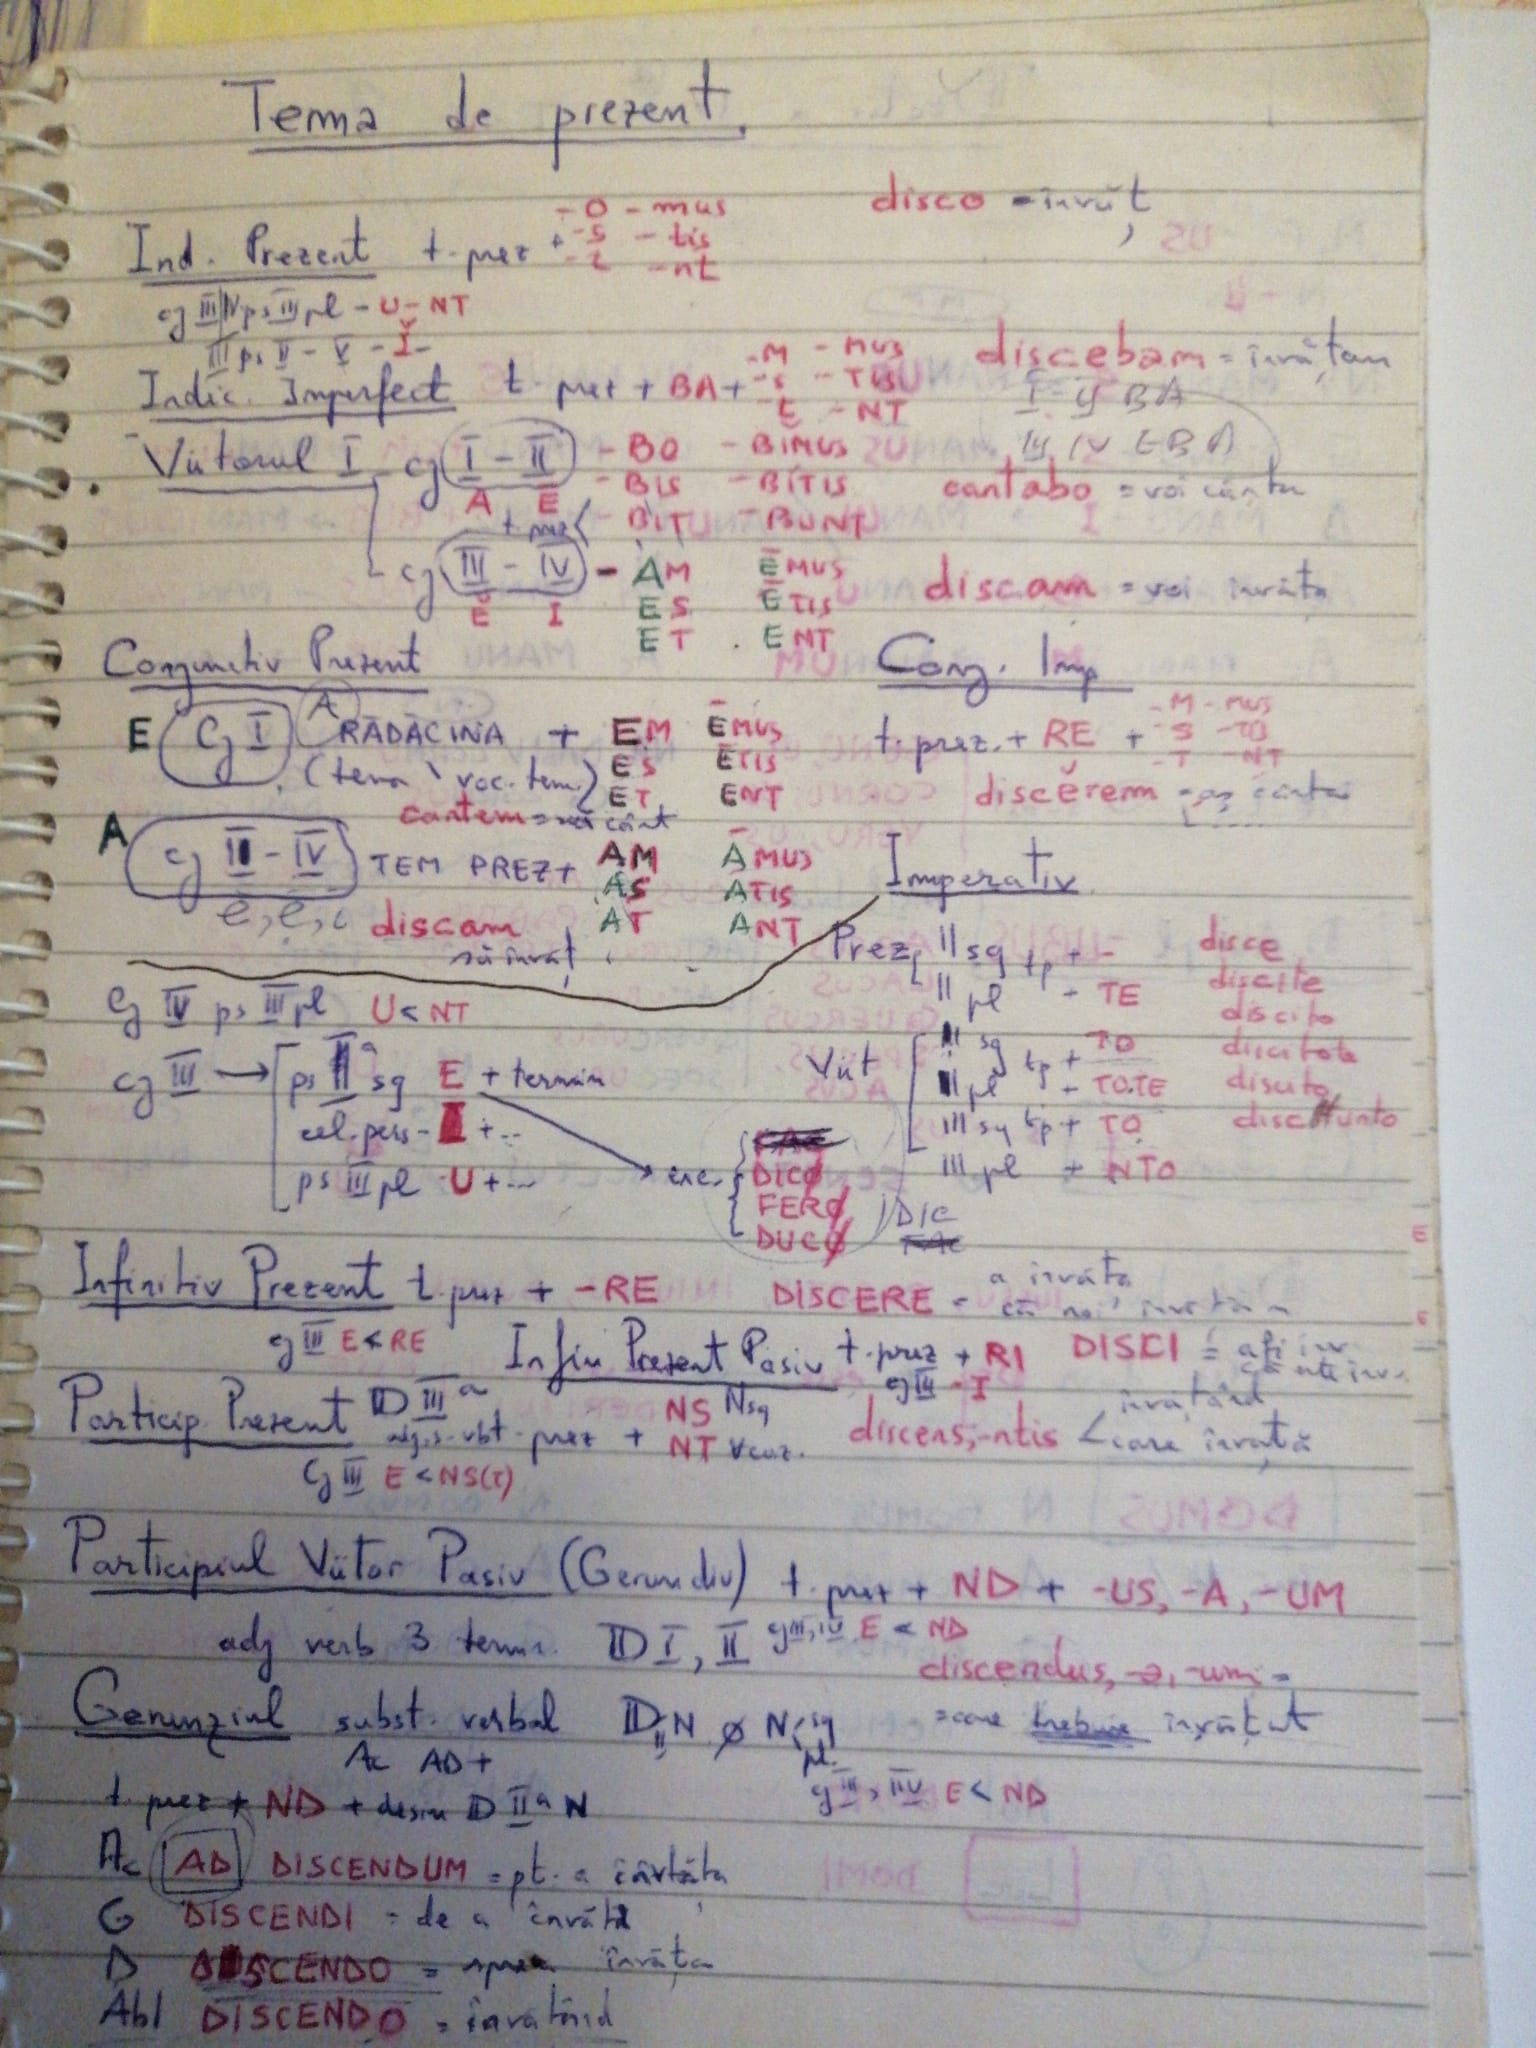 Tema de prezent.
disco = învăț
Ind. Prezent t. prez + -O -mus
-s -tis
-t -nt
cj III IV ps III pl - U - NT
III ps II - V - Ĭ -
Indic. Imperfect t. prez + BA + -M -MUS
-S -TIS
-t -NT
discebam = învățam
I-II BA
III IV EBA
Viitorul I cj I - II -BO -BIMUS
A E -BIS -BITIS
t. prez -BIT -BUNT
cantabo = voi cânta
cj III - IV - AM ĒMUS
Ĕ I ES ĒTIS
ET ENT
discam = voi învăța
Conjunctiv Prezent
E Cj I A RĂDĂCINA + EM ĒMUS
(tema \ voc. tem.) ES ĒTIS
ET ENT
cantem = să cânt
A cj II - IV TEM PREZ + AM ĀMUS
e, e, i AS ATIS
AT ANT
discam
să învăț
Conj. Imp
t. prez. + RE + -M -MUS
-S -TIS
-T -NT
discĕrem
Imperativ
Prez II sg tp + - disce
II pl - TE discite
discito
Viit II sg tp + TO discitote
II pl - TOTE discito
III sg tp + TO discunto
III pl + NTO
Cj IV ps III pl U < NT
cj III → ps IIa sg E + termin
cel. pers - I + ...
ps III pl U + ...
exc. DICØ
FERØ DIC
DUCØ
Infinitiv Prezent t. prez + -RE DISCERE = a învăța
cj III E < RE
Infin Prezent Pasiv t. prez + RI DISCI = a fi înv.
cj III - I
Particip. Prezent D III a NS Nsg
t. prez + NT V caz. discens, -ntis < învățând
care învață
Cj III E < NS(T)
Participiul Viitor Pasiv (Gerundiv) t. prez + ND + -US, -A, -UM
adj verb 3 term. D I, II cj III, IV E < ND
discendus, -a, -um =
= care trebuie învățat
Gerunziul subst. verbal D II N Ø N sg
pl.
Ac AD +
t. prez + ND + desin D II a N cj III, IV E < ND
Ac AD DISCENDUM = pt. a învăța
G DISCENDI = de a învăța
D DISCENDO = spre învăța
Abl DISCENDO = învățând